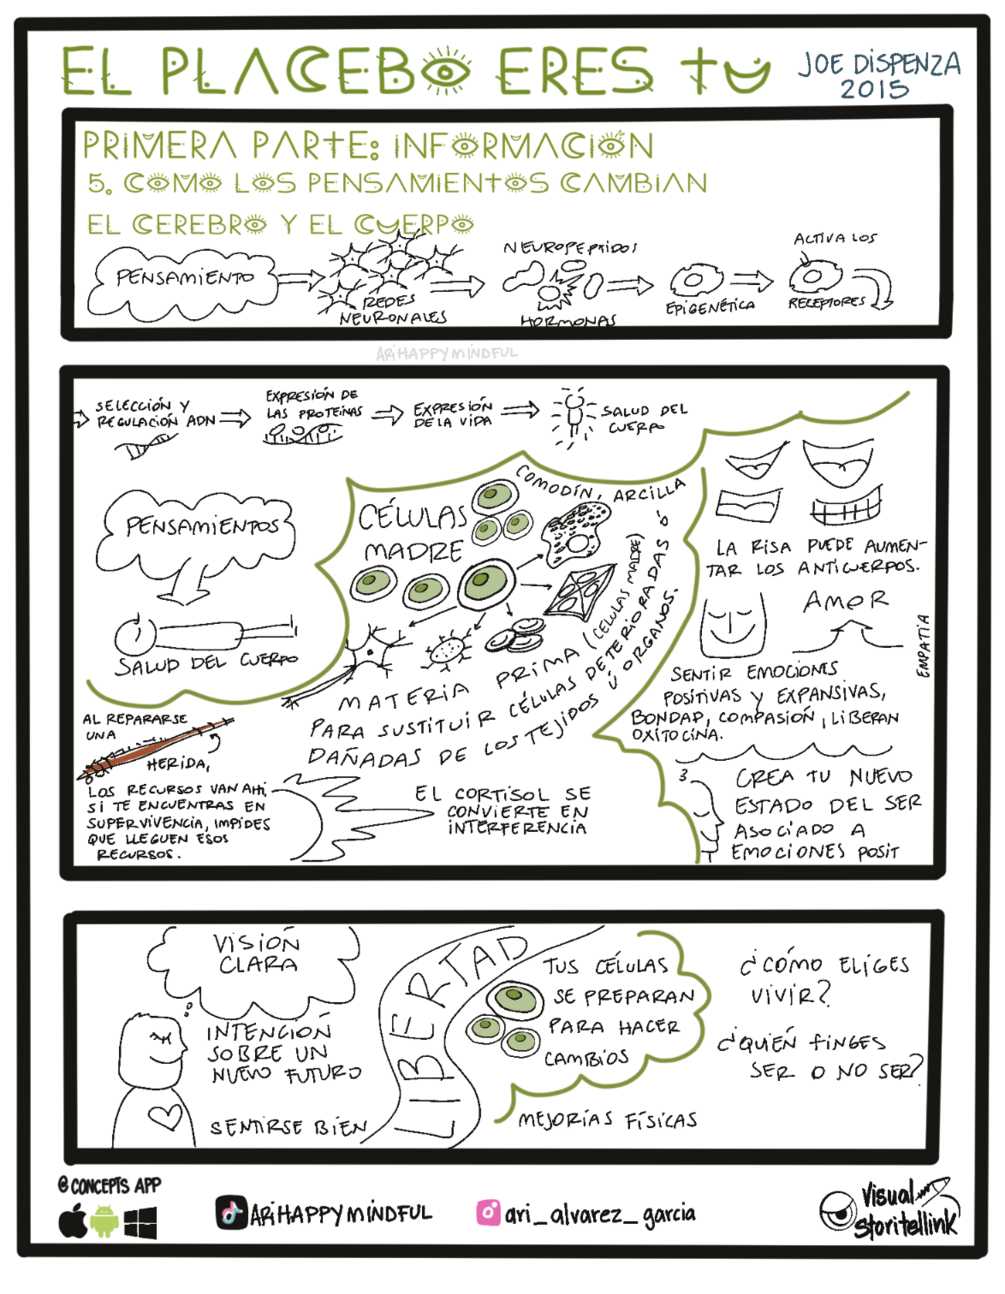 EL PLACEBO ERES TU
JOE DISPENZA
2015
PRIMERA PARTE: INFORMACIÓN
5. COMO LOS PENSAMIENTOS CAMBIAN
EL CEREBRO Y EL CUERPO
PENSAMIENTO
REDES
NEURONALES
NEUROPEPTIDOS
HORMONAS
EPIGENÉTICA
ACTIVA LOS
RECEPTORES
ARIHAPPYMINDFUL
SELECCIÓN Y
REGULACIÓN ADN
EXPRESIÓN DE
LAS PROTEÍNAS
EXPRESIÓN
DE LA VIDA
SALUD DEL
CUERPO
PENSAMIENTOS
SALUD DEL CUERPO
CÉLULAS
MADRE
COMODÍN, ARCILLA
MATERIA PRIMA (CÉLULAS MADRE)
PARA SUSTITUIR CÉLULAS DETERIORADAS Ó
DAÑADAS DE LOS TEJIDOS Ú ORGANOS.
LA RISA PUEDE AUMEN-
TAR LOS ANTICUERPOS.
AMOR
EMPATÍA
SENTIR EMOCIONES
POSITIVAS Y EXPANSIVAS,
BONDAD, COMPASIÓN, LIBERAN
OXITOCINA.
AL REPARARSE
UNA
HERIDA,
LOS RECURSOS VAN AHÍ,
SI TE ENCUENTRAS EN
SUPERVIVENCIA, IMPIDES
QUE LLEGUEN ESOS
RECURSOS.
EL CORTISOL SE
CONVIERTE EN
INTERFERENCIA
CREA TU NUEVO
ESTADO DEL SER
ASOCIADO A
EMOCIONES POSIT
VISIÓN
CLARA
INTENCIÓN
SOBRE UN
NUEVO FUTURO
SENTIRSE BIEN
LIBERTAD
TUS CÉLULAS
SE PREPARAN
PARA HACER
CAMBIOS
MEJORÍAS FÍSICAS
¿CÓMO ELIGES
VIVIR?
¿QUIÉN FINGES
SER O NO SER?
@CONCEPTS APP
ARIHAPPYMINDFUL
ari_alvarez_garcia
Visual
Storitellink